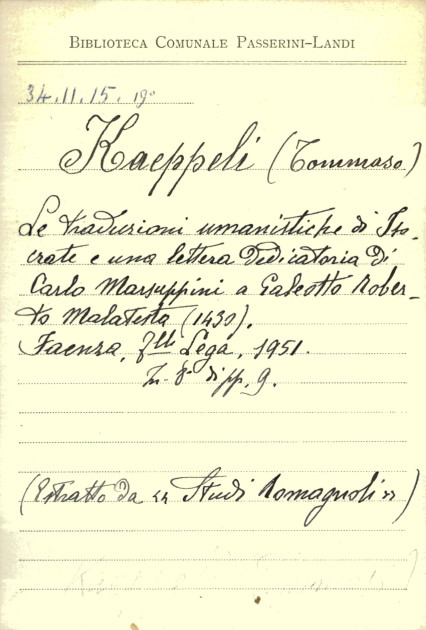 BIBLIOTECA COMUNALE PASSERINI-LANDI
34.11.15. 19°
Kaeppeli (Tommaso)
Le traduzioni umanistiche di Iso-
crate e una lettera dedicatoria di
Carlo Marsuppini a Galeotto Rober-
to Malatesta (1430).
Faenza, F.lli Lega, 1951.
In-8° di pp. 9.
(Estratto da « Studi Romagnoli »)